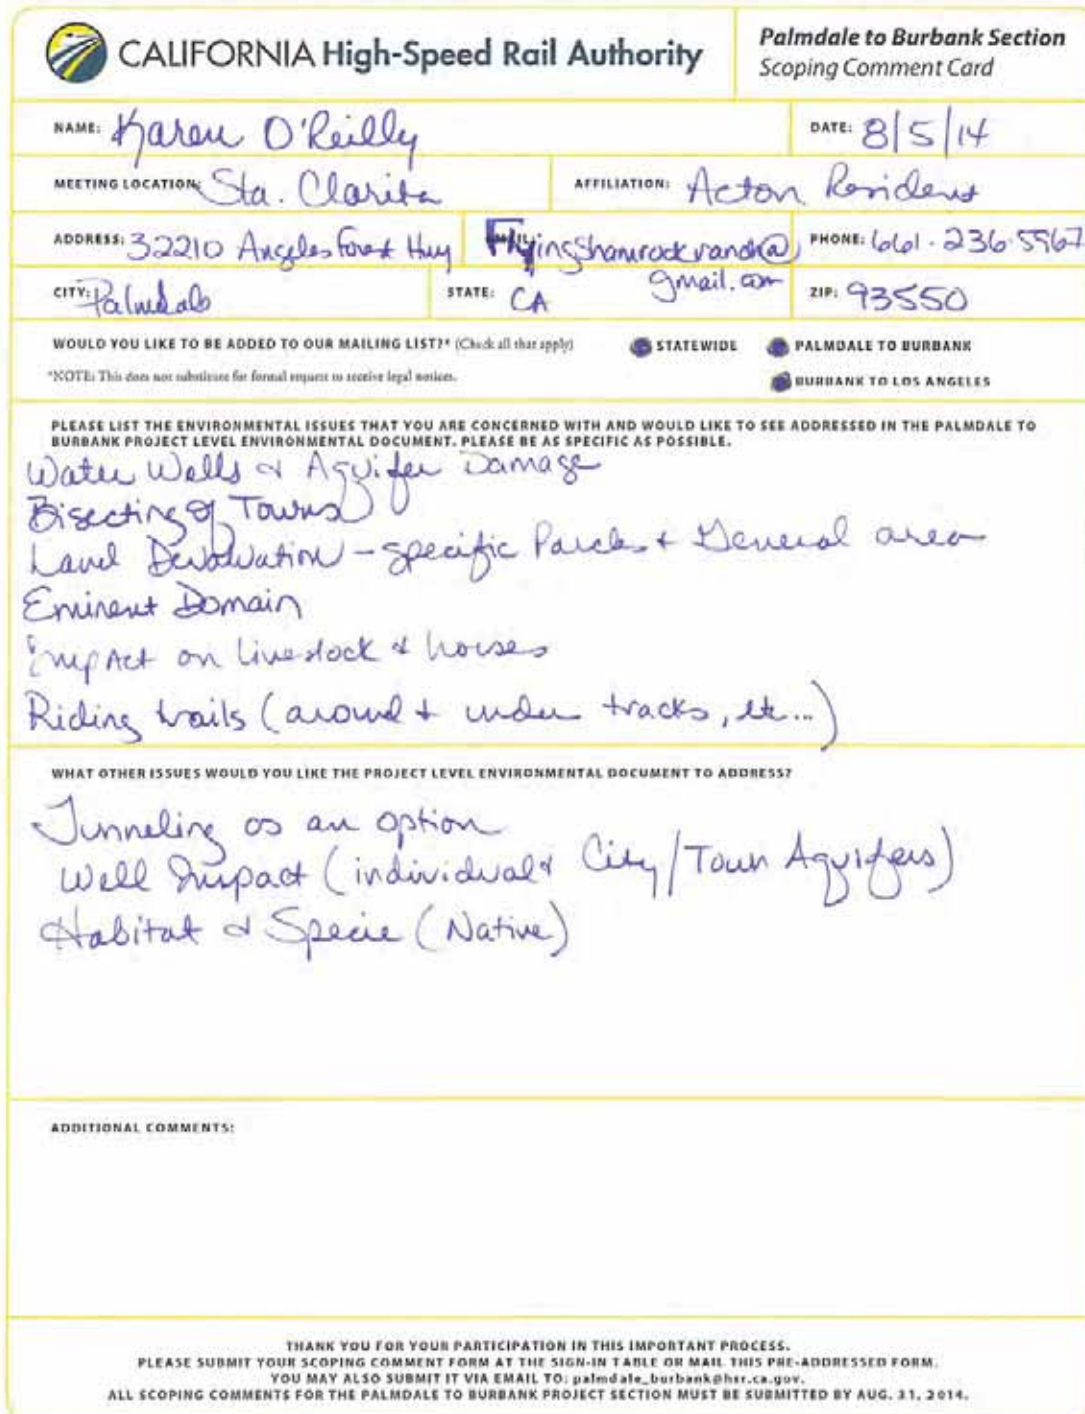 CALIFORNIA High-Speed Rail Authority
Palmdale to Burbank Section
Scoping Comment Card
NAME: Karen O'Reilly
DATE: 8/5/14
MEETING LOCATION: Sta. Clarita
AFFILIATION: Acton Resident
ADDRESS: 32210 Angeles Forest Hwy
FlyingShamrockranch@
gmail.com
PHONE: 661-236-5567
CITY: Palmdale
STATE: CA
ZIP: 93550
WOULD YOU LIKE TO BE ADDED TO OUR MAILING LIST?* (Check all that apply)
STATEWIDE
PALMDALE TO BURBANK
*NOTE: This does not substitute for formal request to receive legal notices.
BURBANK TO LOS ANGELES
PLEASE LIST THE ENVIRONMENTAL ISSUES THAT YOU ARE CONCERNED WITH AND WOULD LIKE TO SEE ADDRESSED IN THE PALMDALE TO
BURBANK PROJECT LEVEL ENVIRONMENTAL DOCUMENT. PLEASE BE AS SPECIFIC AS POSSIBLE.
Water Wells & Aquifer Damage
Bisecting of Towns
Land Devaluation - specific Parcels + General area
Eminent Domain
Impact on livestock & horses
Riding trails (around + under tracks, etc...)
WHAT OTHER ISSUES WOULD YOU LIKE THE PROJECT LEVEL ENVIRONMENTAL DOCUMENT TO ADDRESS?
Tunneling as an option
Well Impact (individual & City/Town Aquifers)
Habitat & Specie (Native)
ADDITIONAL COMMENTS:
THANK YOU FOR YOUR PARTICIPATION IN THIS IMPORTANT PROCESS.
PLEASE SUBMIT YOUR SCOPING COMMENT FORM AT THE SIGN-IN TABLE OR MAIL THIS PRE-ADDRESSED FORM.
YOU MAY ALSO SUBMIT IT VIA EMAIL TO: palmdale_burbank@hsr.ca.gov.
ALL SCOPING COMMENTS FOR THE PALMDALE TO BURBANK PROJECT SECTION MUST BE SUBMITTED BY AUG. 31, 2014.